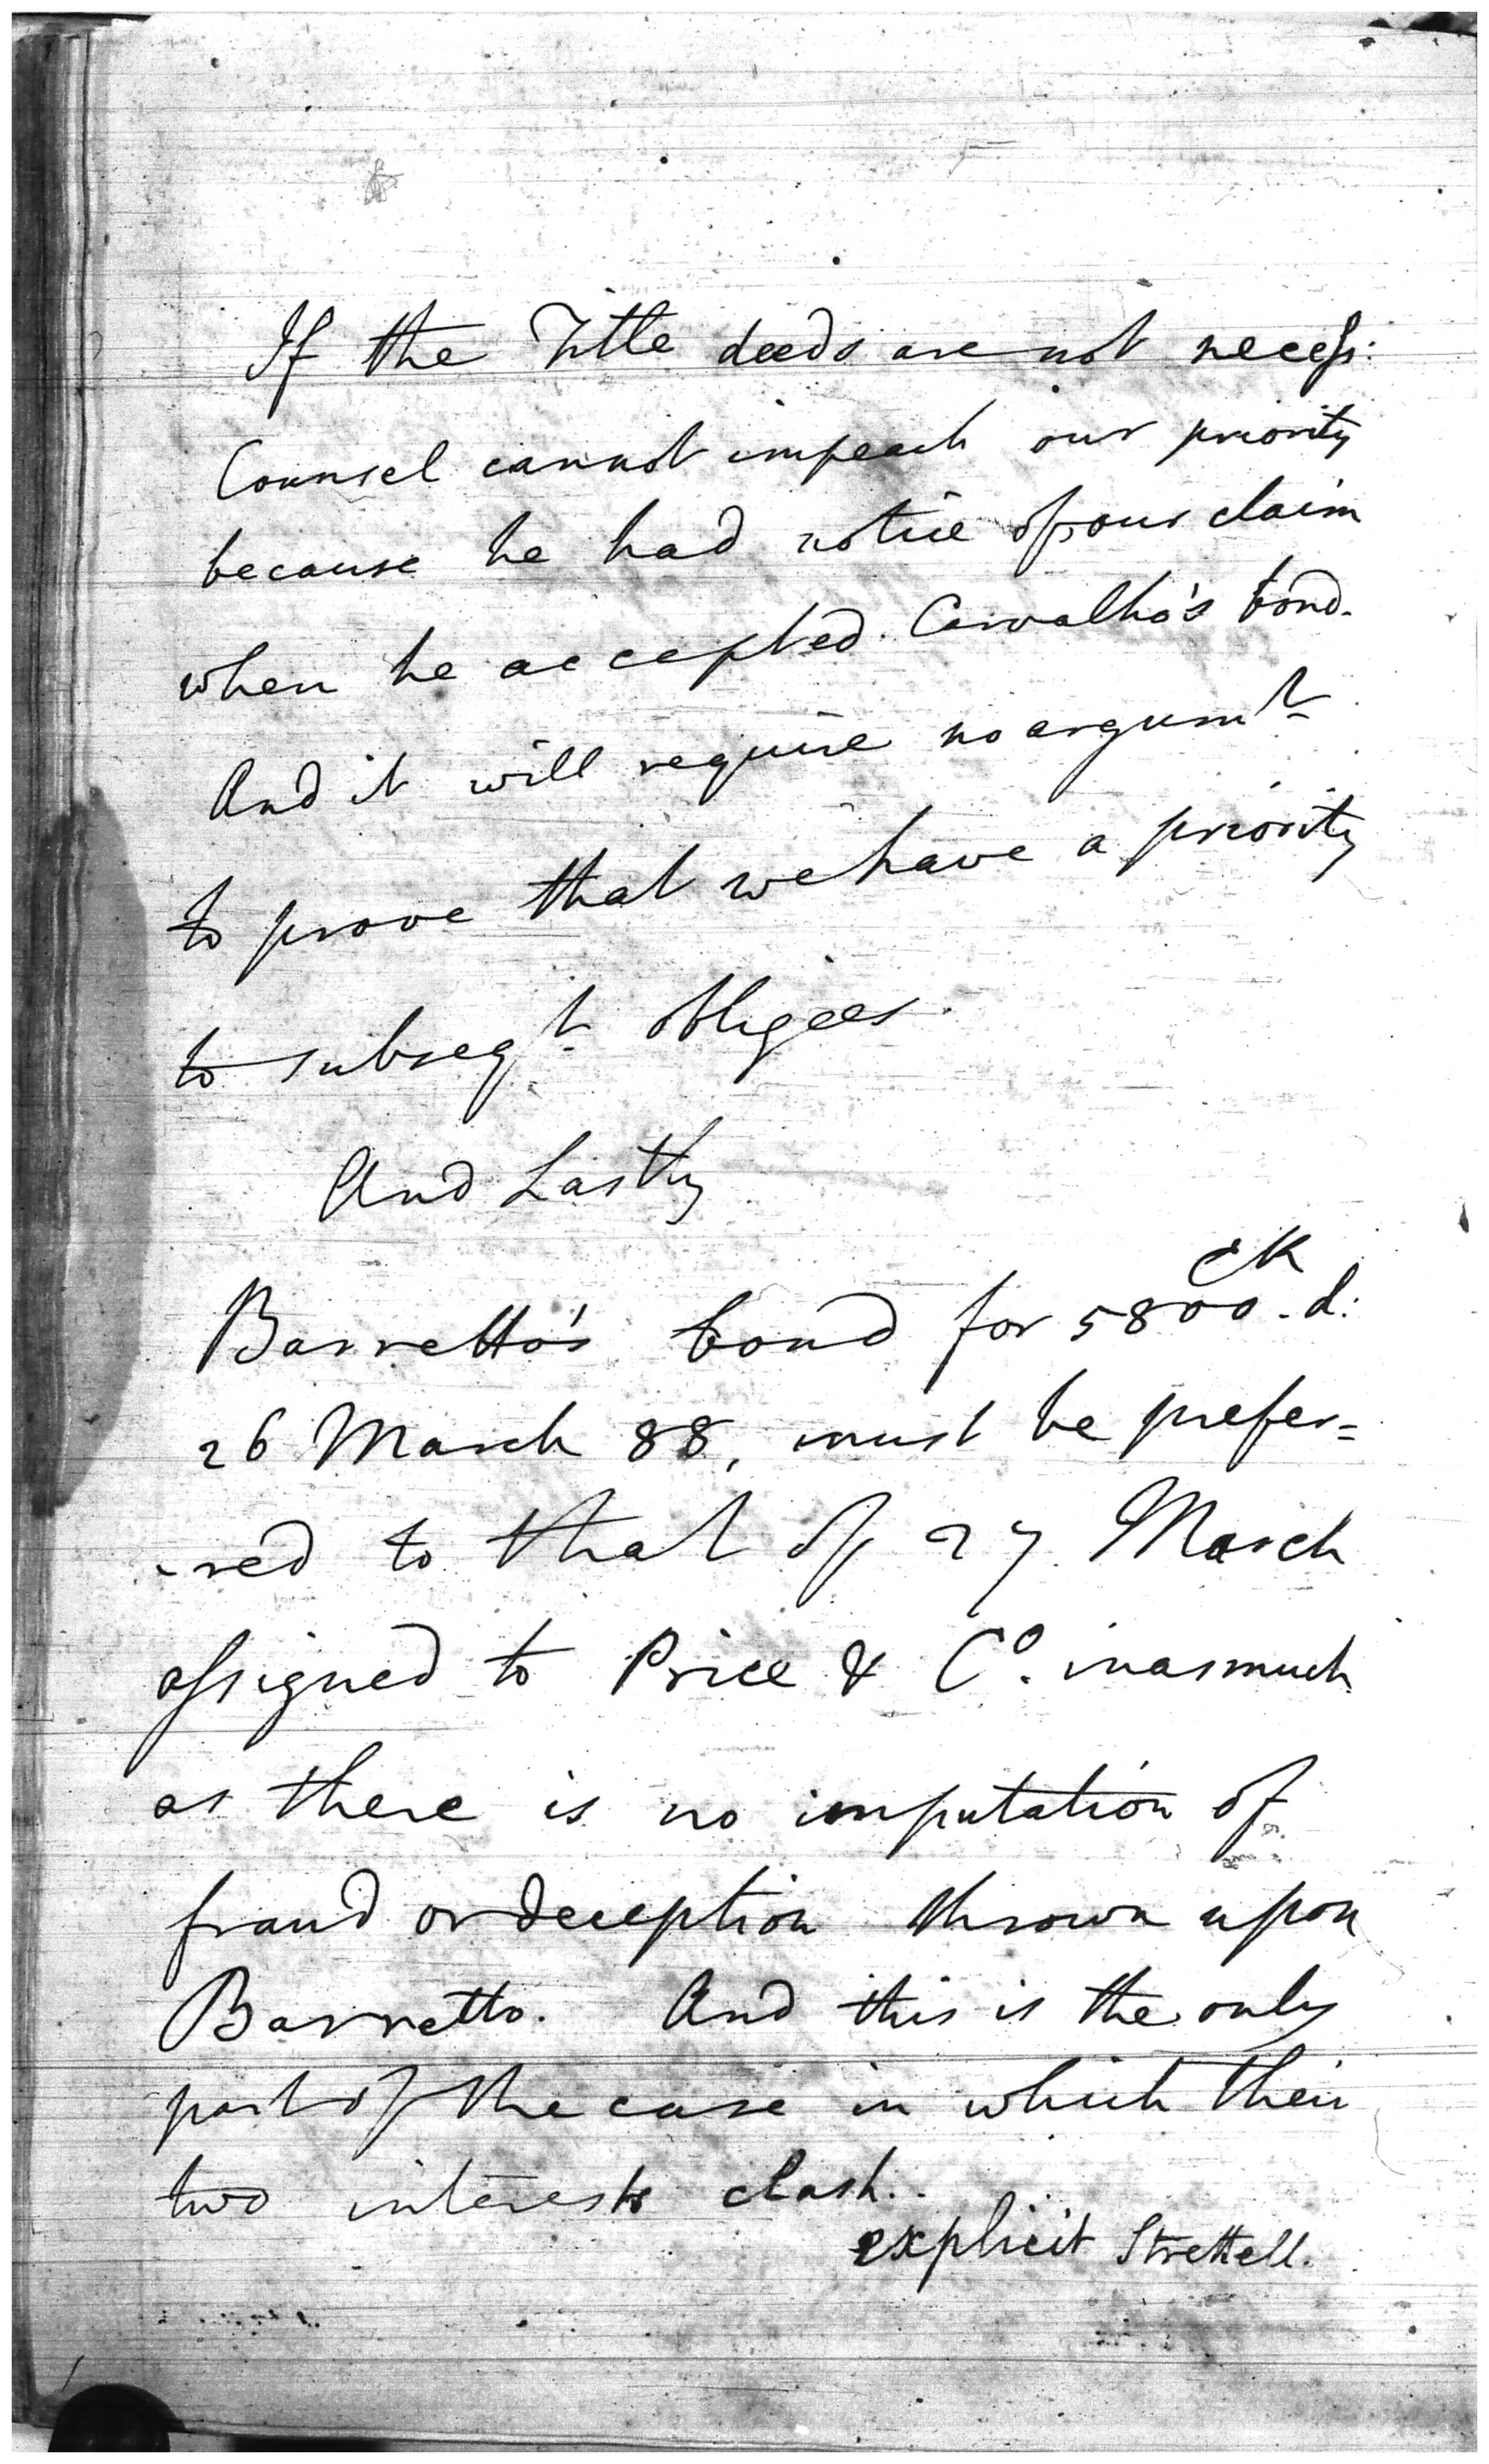 If the Title deeds are not necess:
Counsel cannot impeach our priority
because he had notice of our claim
when he accepted Carvalho's bond.
And it will require no argumt
to prove that we have a priority
to subseqt obligees.
And Lastly
Barretto's bond for 5800. d:
26 March 88, must be prefer=
-red to that of 27 March
assigned to Price & Co. inasmuch
as there is no imputation of
fraud or deception thrown upon
Barretto. And this is the only
part of the case in which their
two interests clash.
explicit Strettell.